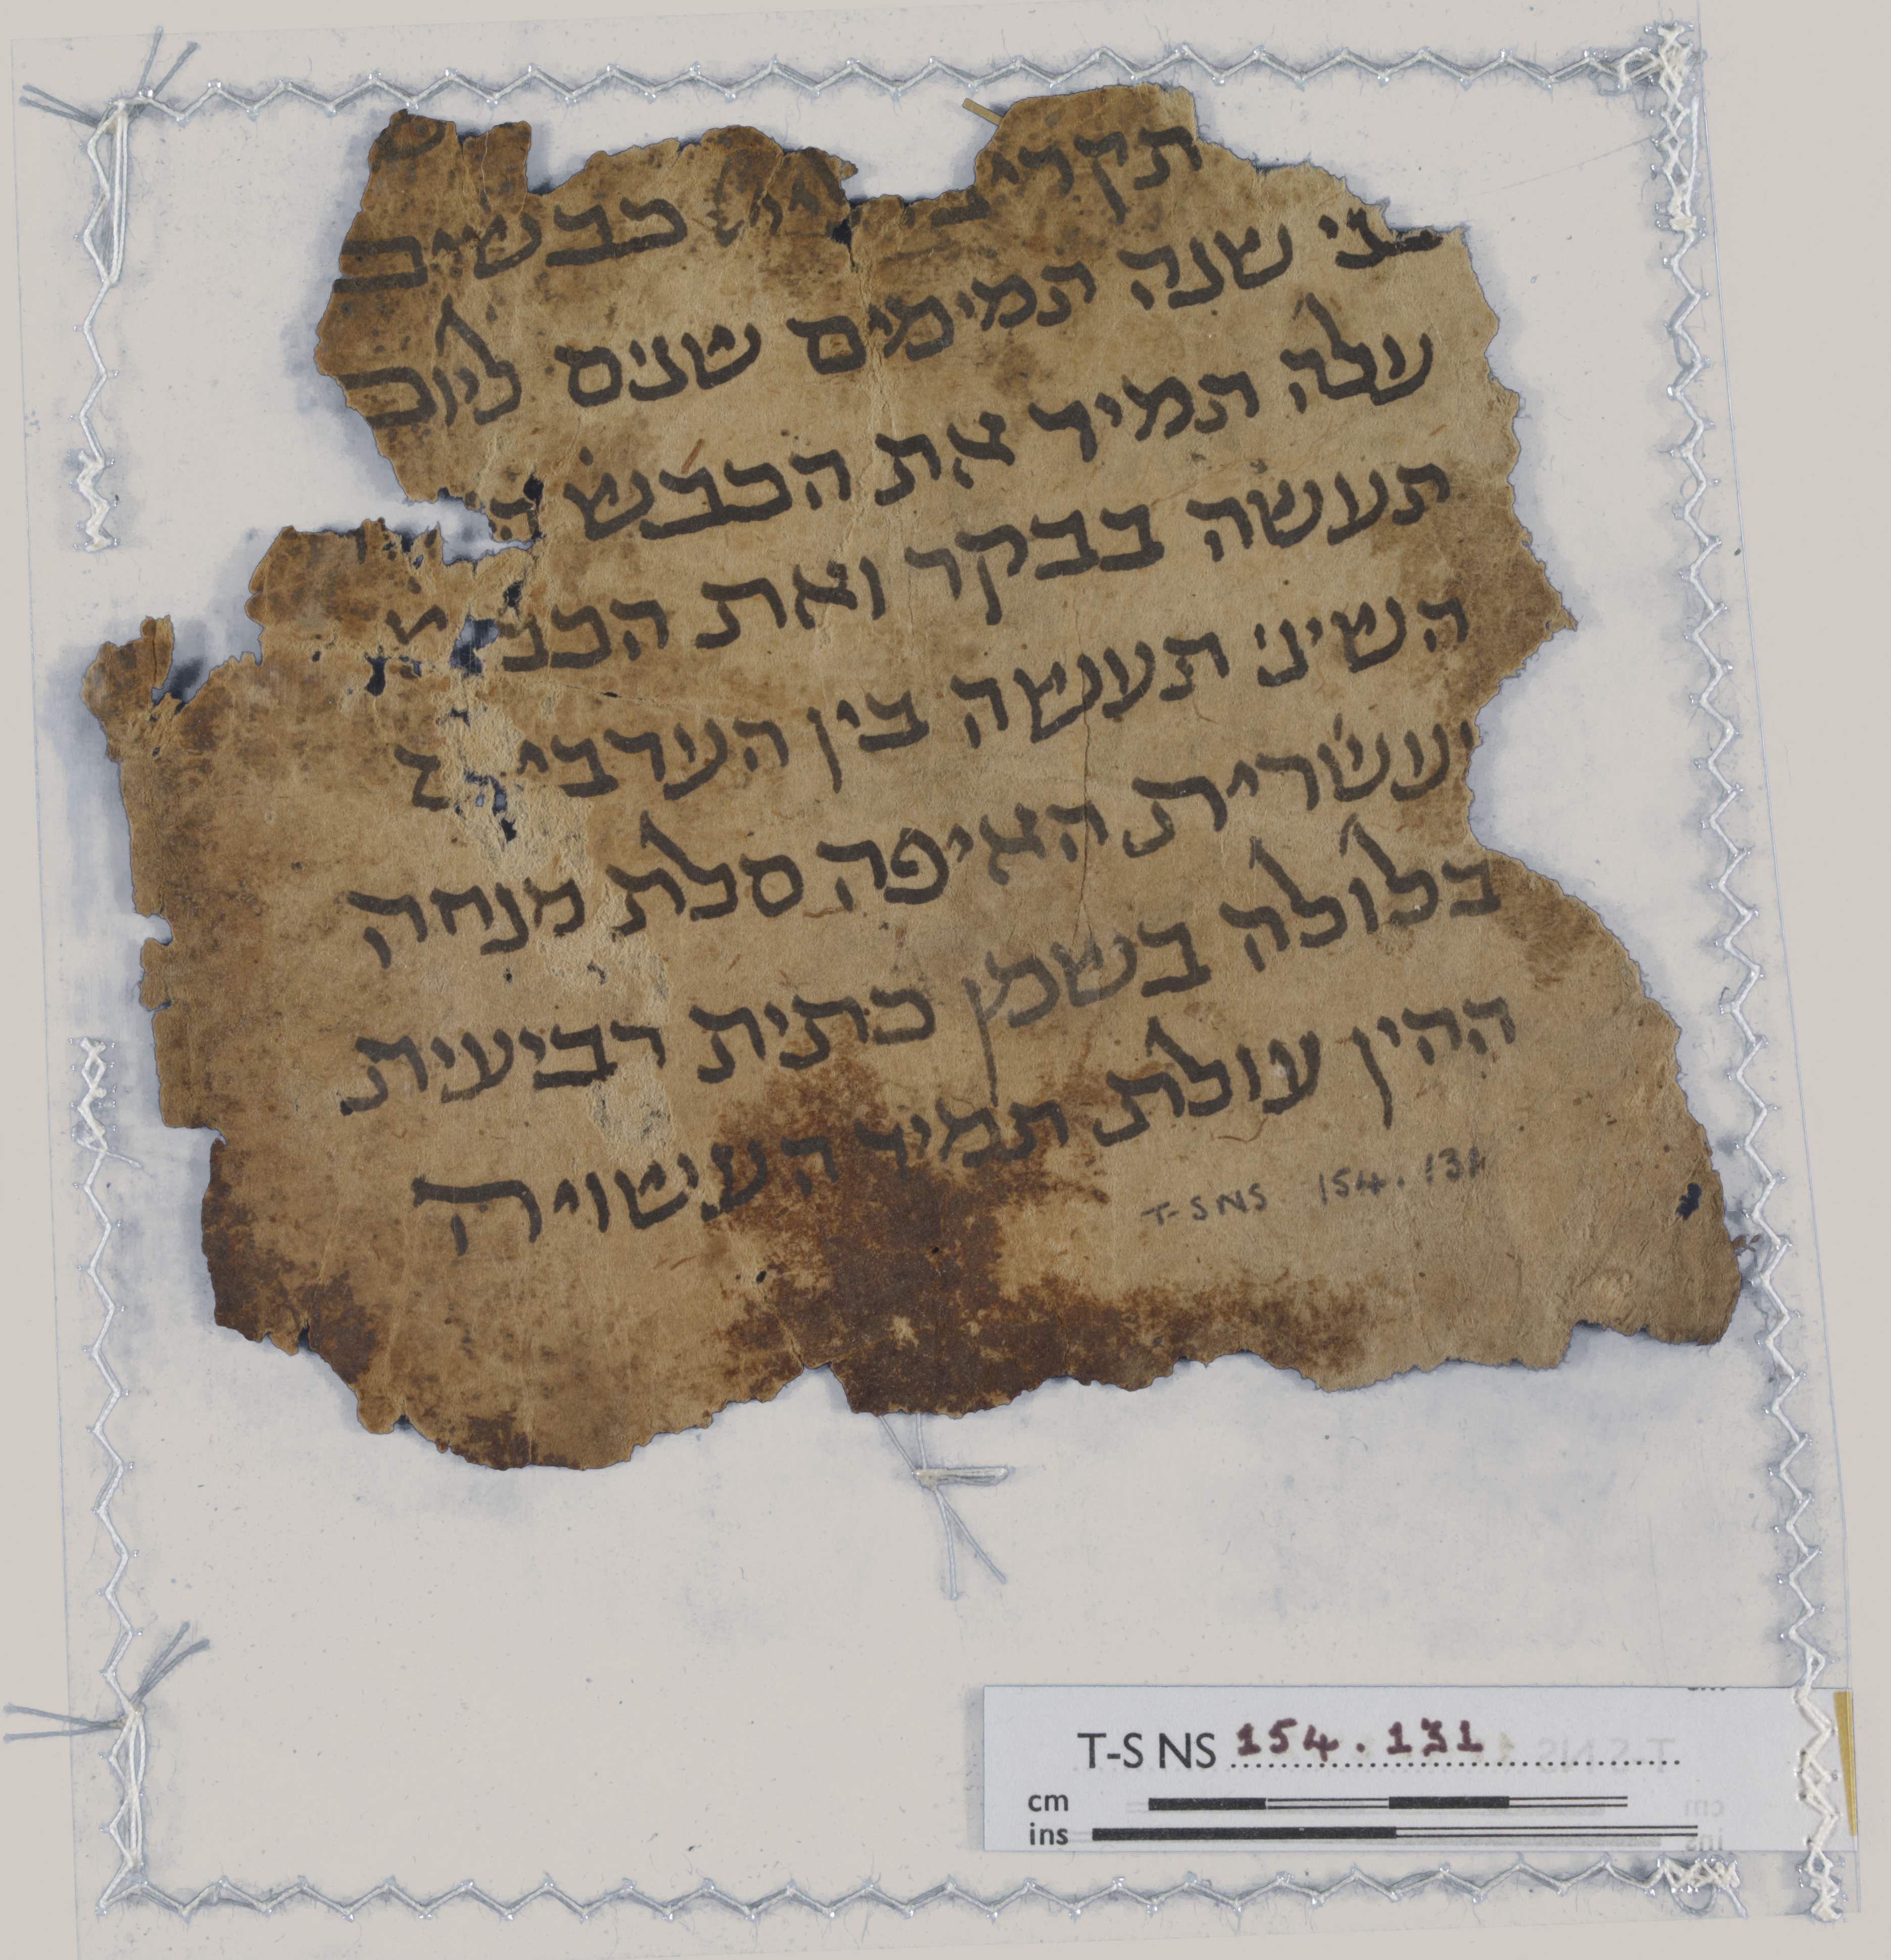 תקריבו כבשים
בני שנה תמימים שנים ליום
עלה תמיד את הכבש
תעשה בבקר ואת הכבש
השיני תעשה בין הערבים
ועשרית האיפה סלת מנחה
בלולה בשמן כתית רביעית
ההין עולת תמיד העשויה
T-S NS 154.131
T-S NS 154.131
cm
ins